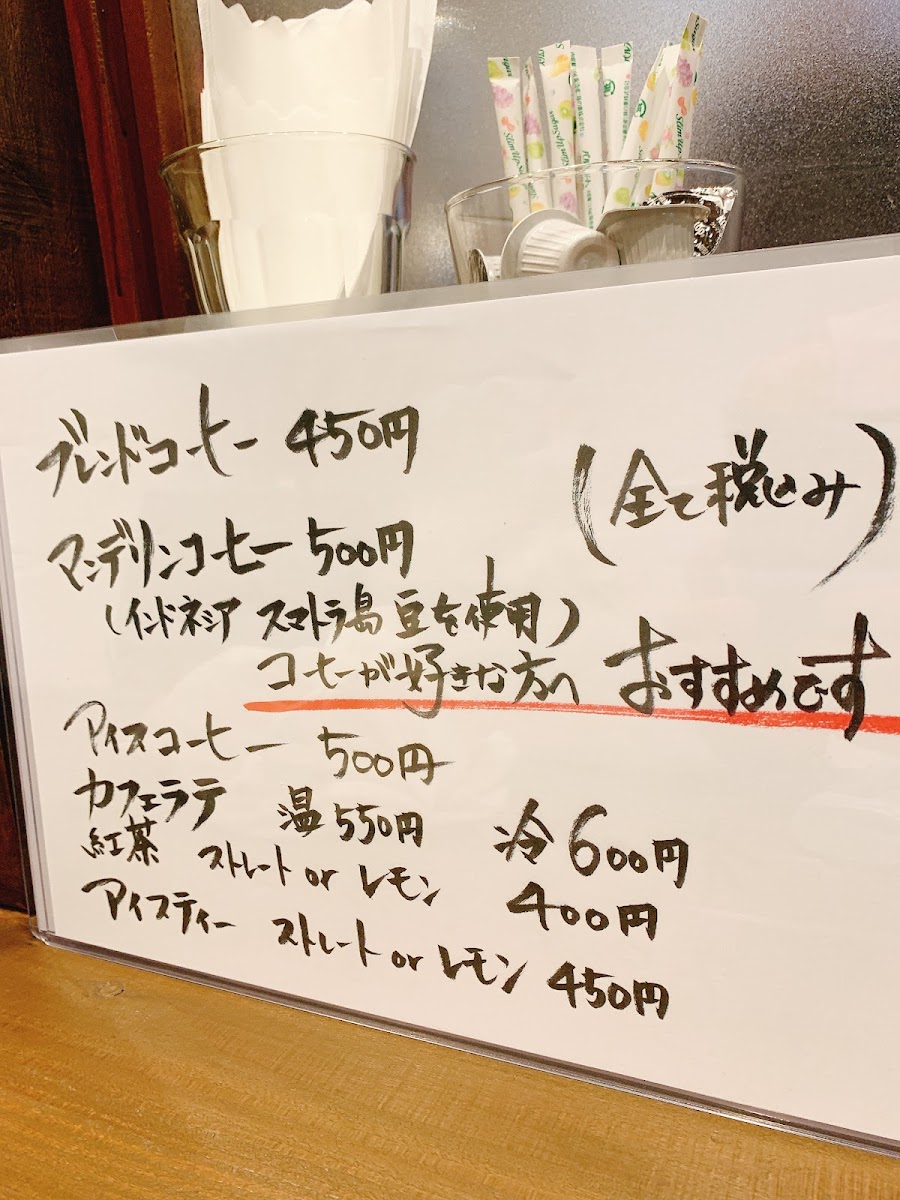 Slim Up Sugar
ブレンドコーヒー 450円
(全て税込み)
マンデリンコーヒー 500円
(インドネシア スマトラ島 豆を使用)
コーヒーが好きな方へ おすすめです
アイスコーヒー 500円
カフェラテ 温 550円 冷 600円
紅茶 ストレート or レモン 400円
アイスティー ストレート or レモン 450円